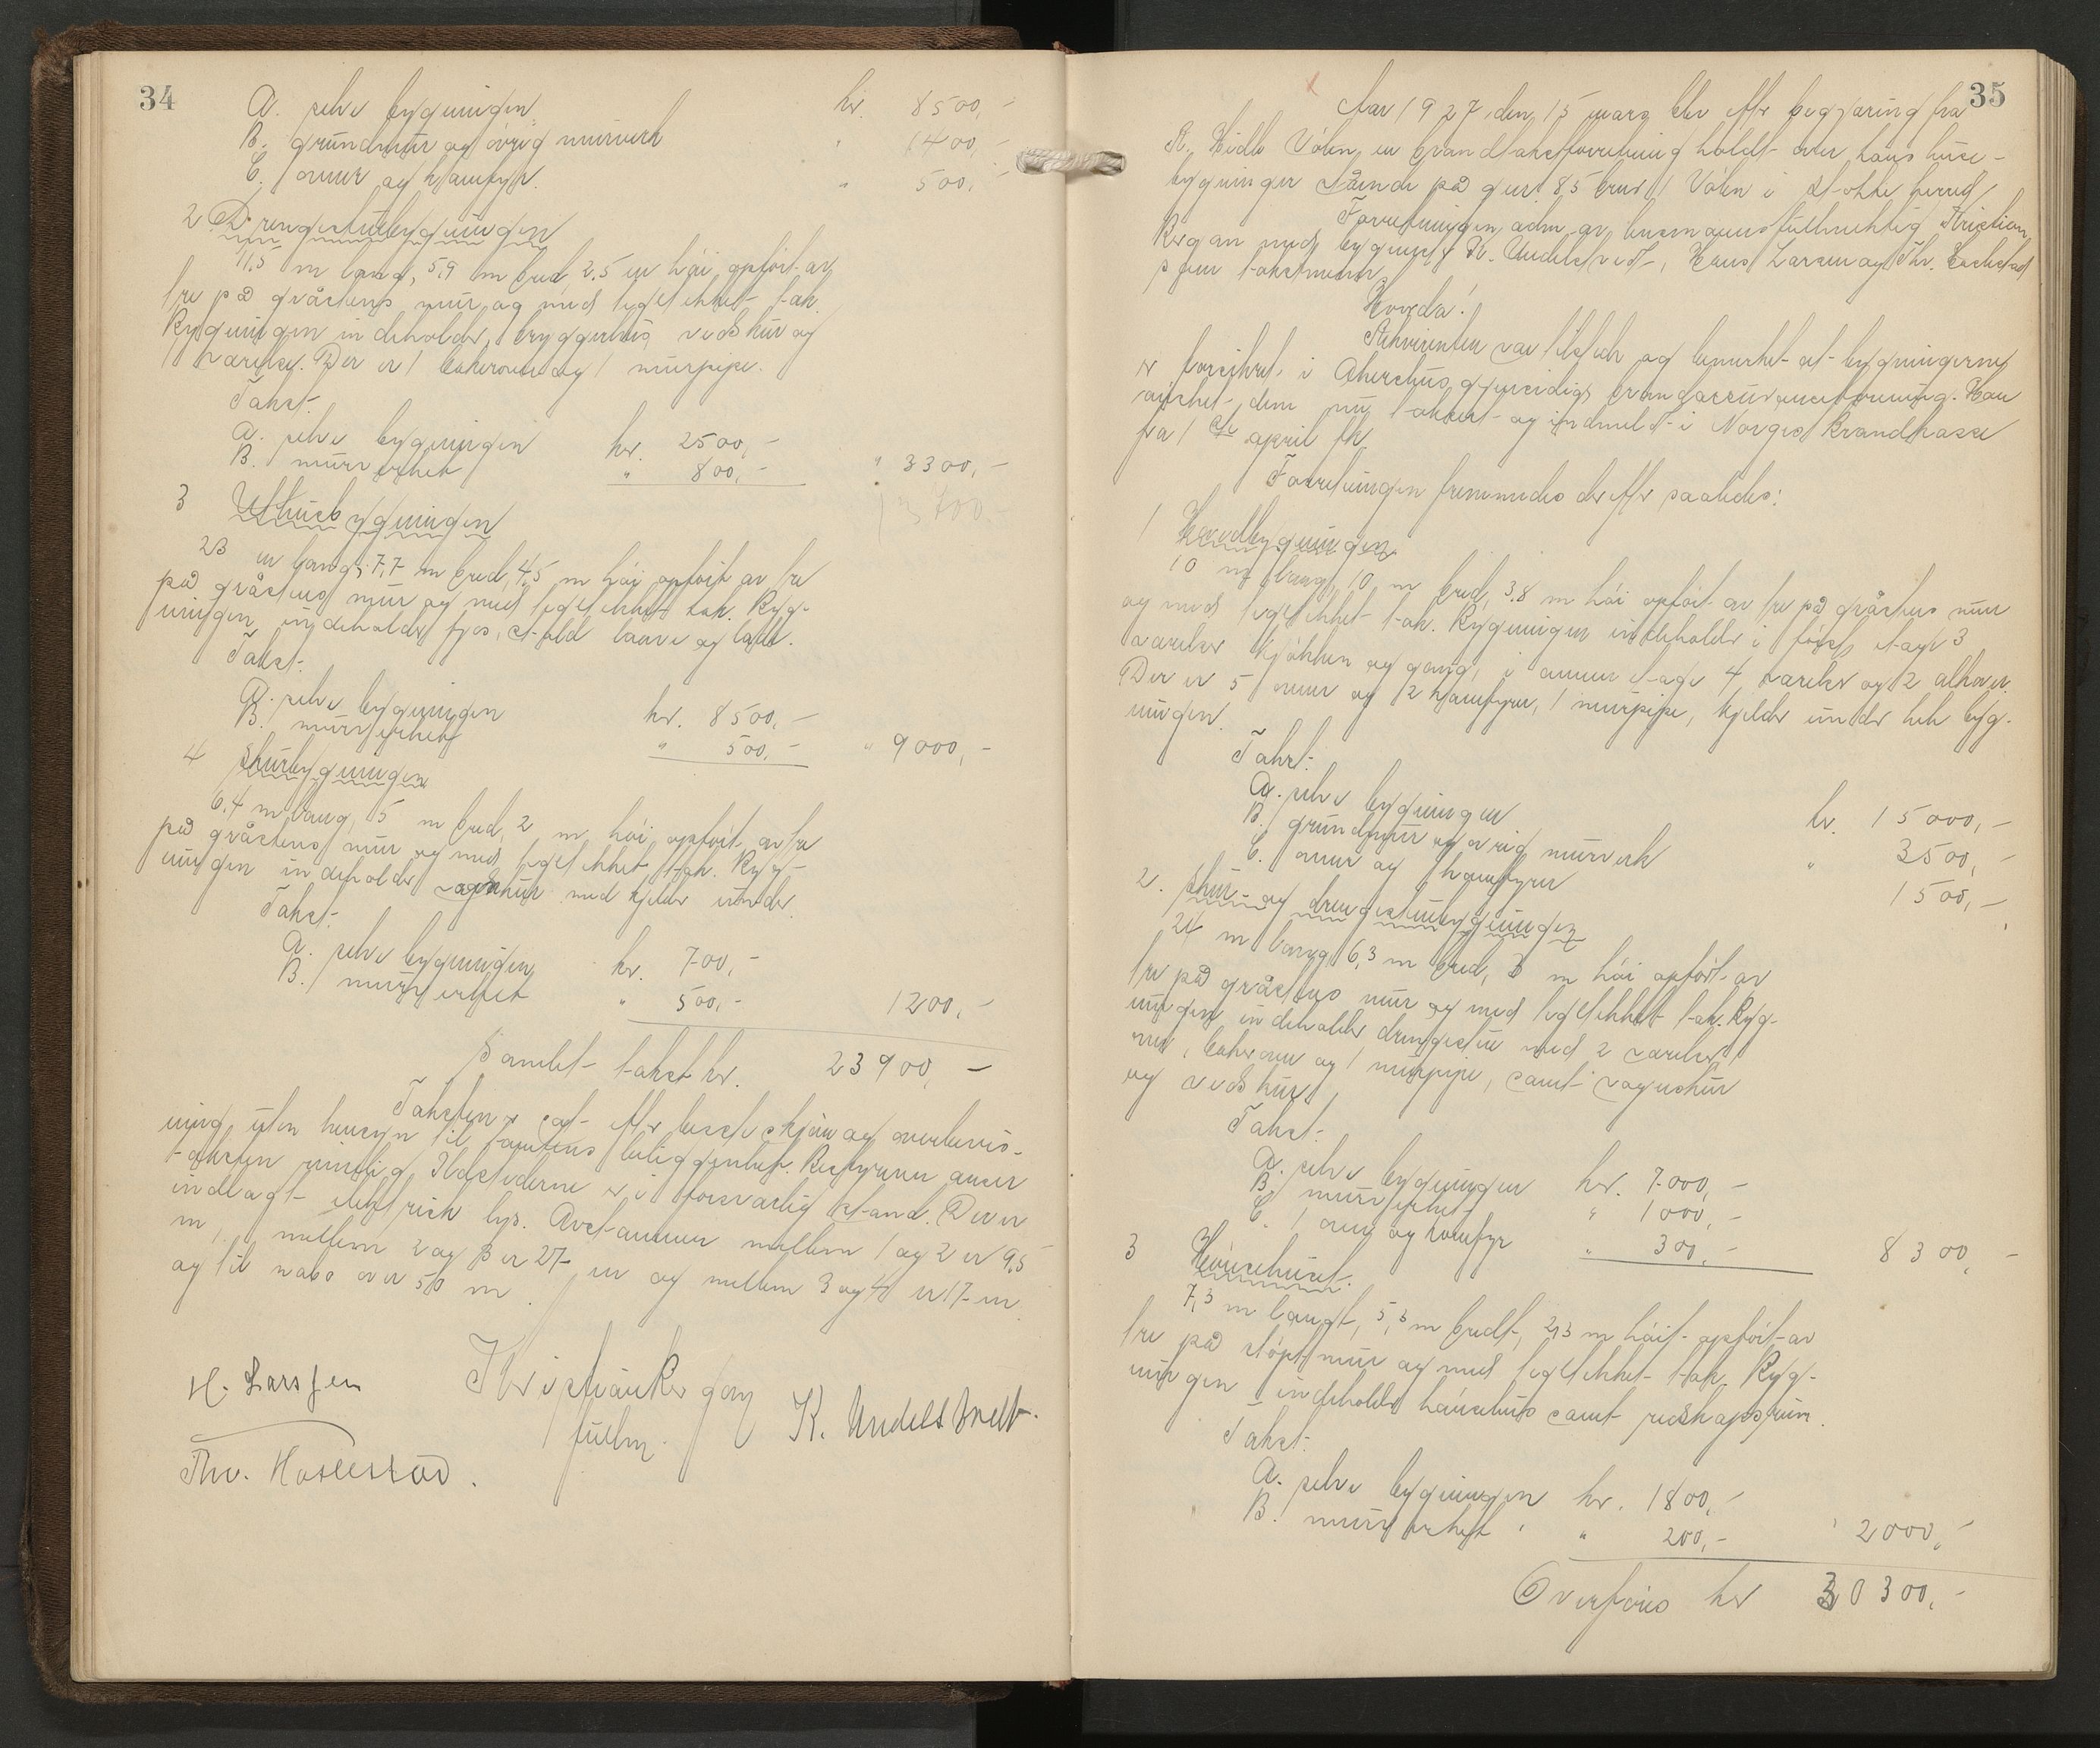 34
A. selve bygningen kr. 8500,-
B. grundmur og övrig murverk " 1400,-
C. ovner og komfyr. " 500,-
2 Drengestubygningen
11,5 m lang, 5,9 m bred, 2,5 m høi opført av
tre på gråstens mur og med teglstekket tak.
Bygningen indeholder, bryggerhus vedskur og
1 værelse. Der er 1 bakerovn og 1 murpipe.
Takst:
A. selve bygningen kr. 2500,-
B. murverket " 800,- " 3300,-
13700
3 Uthusbygningen
23 m lang, 7,7 m bred, 4,5 m høi opført av tre
på gråstens mur og med teglstekket tak. Byg-
ningen indeholder fjøs, stald laave og lade.
Takst:
A. selve bygningen kr. 8500,-
B. murverket " 500,- " 9000,-
4 Skurbygningen
6,4 m lang, 5 m bred, 2 m høi opført av tre
på gråstens mur og med teglstekket tak. Byg-
ningen indeholder vognskur med kjelder under.
Takst:
A. selve bygningen kr. 700,-
B. murverket " 500,- 1200,-
Samlet takst kr. 23900,-
Taksten er sat efter beste skjøn og overbevis-
ning uten hensyn til tomtens beliggenhet. Bestyreren anser
taksten rimelig. Ildstederne er i forsvarlig stand. Der er
indlagt elektrisk lys. Avstanden mellem 1 og 2 er 9,5
m, mellem 2 og 3 er 27 m og mellem 3 og 4 er 17 m
og til nabo over 50 m.
H. Larssen Kristian Bergan K. Undelstvedt.
fullm.
Thv. Haslestad.
35
Aar 1927 den 15 mars blev efter begjæring fra
A. Vidle Vølen en brandtakstforretning holdt over hans hus-
bygninger staaende på gnr. 85 bnr. 1 Vølen i Stokke herred
Forretningen adm. av lensmannsfullmektig Kristian
Bergan med bygnings K. Undelstvedt, Hans Larssen og Thv. Haslestad
som takstmenn.
Hvorda!
Rekvirenten var tilstede og bemerket at bygningerne
er forsikret i Akershus gjensidige brandassuranceforening. Han
ønsket dem nu takseret og indmeldt i Norges Brandkasse
fra 1ste april fk.
Forretningen fremmedes derefter saaledes:
1 Hovedbygningen
10 m lang, 10 m bred, 3,8 m høi opført av tre på gråstens mur
og med teglstekket tak. Bygningen indeholder i første etage 3
værelser kjøkken og gang, i annen etage 4 værelser og 2 alkover.
Der er 5 ovner og 2 komfyrer, 1 murpipe, kjelder under hele byg-
ningen.
Takst:
A. selve bygningen kr. 15000,-
B. grundmur og övrig murverk " 3500,-
C. ovner og komfyrer 1500,-
2. Skur- og drengestubygningen
24 m lang 6,3 m bred, 3 m høi opført av
tre på gråstens mur og med teglstekket tak. Byg-
ningen indeholder drengestue med 2 værelser
ovn, bakerovn og 1 murpipe, samt vognskur
og vedskur.
Takst:
A. selve bygningen kr. 7000,-
B. murverket " 1000,-
C. 1 ovn og komfyr " 300,- 8300,-
3 Hønsehuset.
7,3 m langt, 5,3 m bredt, 2,3 m høit opført av
tre på støpt mur og med teglstekket tak. Byg-
ningen indeholder hønsehus samt redskapsrum.
Takst:
A. selve bygningen kr. 1800,-
B. murverket " 200,- " 2000,-
Overføres kr 30300,-